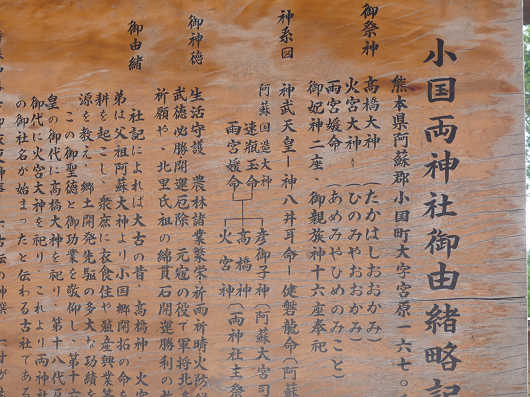 小国両神社御由緒略記
熊本県阿蘇郡小国町大字宮原一六七〇
御祭神
高橋大神（たかはしおおかみ）
火宮大神（ひのみやおおかみ）
雨宮媛命（あめみやひめのみこと）
御妃神二座、御親族神十六座奉祀
神系図
神武天皇ー神八井耳命ー健磐龍命（阿蘇
阿蘇国造大神
速瓶玉命
雨宮媛命
彦御子神（阿蘇大宮司
高橋神（両神社主祭
火宮神
御神徳
生活守護 農林諸業繁栄祈雨祈晴火防
武徳必勝開運厄除 元寇の役て軍将北
祈願や、北里氏祖の綿貫石開運勝利の
御由緒
社記によれば大古の昔、高橋神 火宮
弟は父祖阿蘇大神より小国郷開拓の命を
耕を起こし、衆庶に衣食住や殖産興業
源を教え、郷土開発先駆の多大な功績を
この御聖徳と御功業を敬仰し、第十六
皇の御代に高橋大神を祀り、第十八代
御代に火宮大神を祀り、これより両神社
の御社名が始まったと伝わる古社である